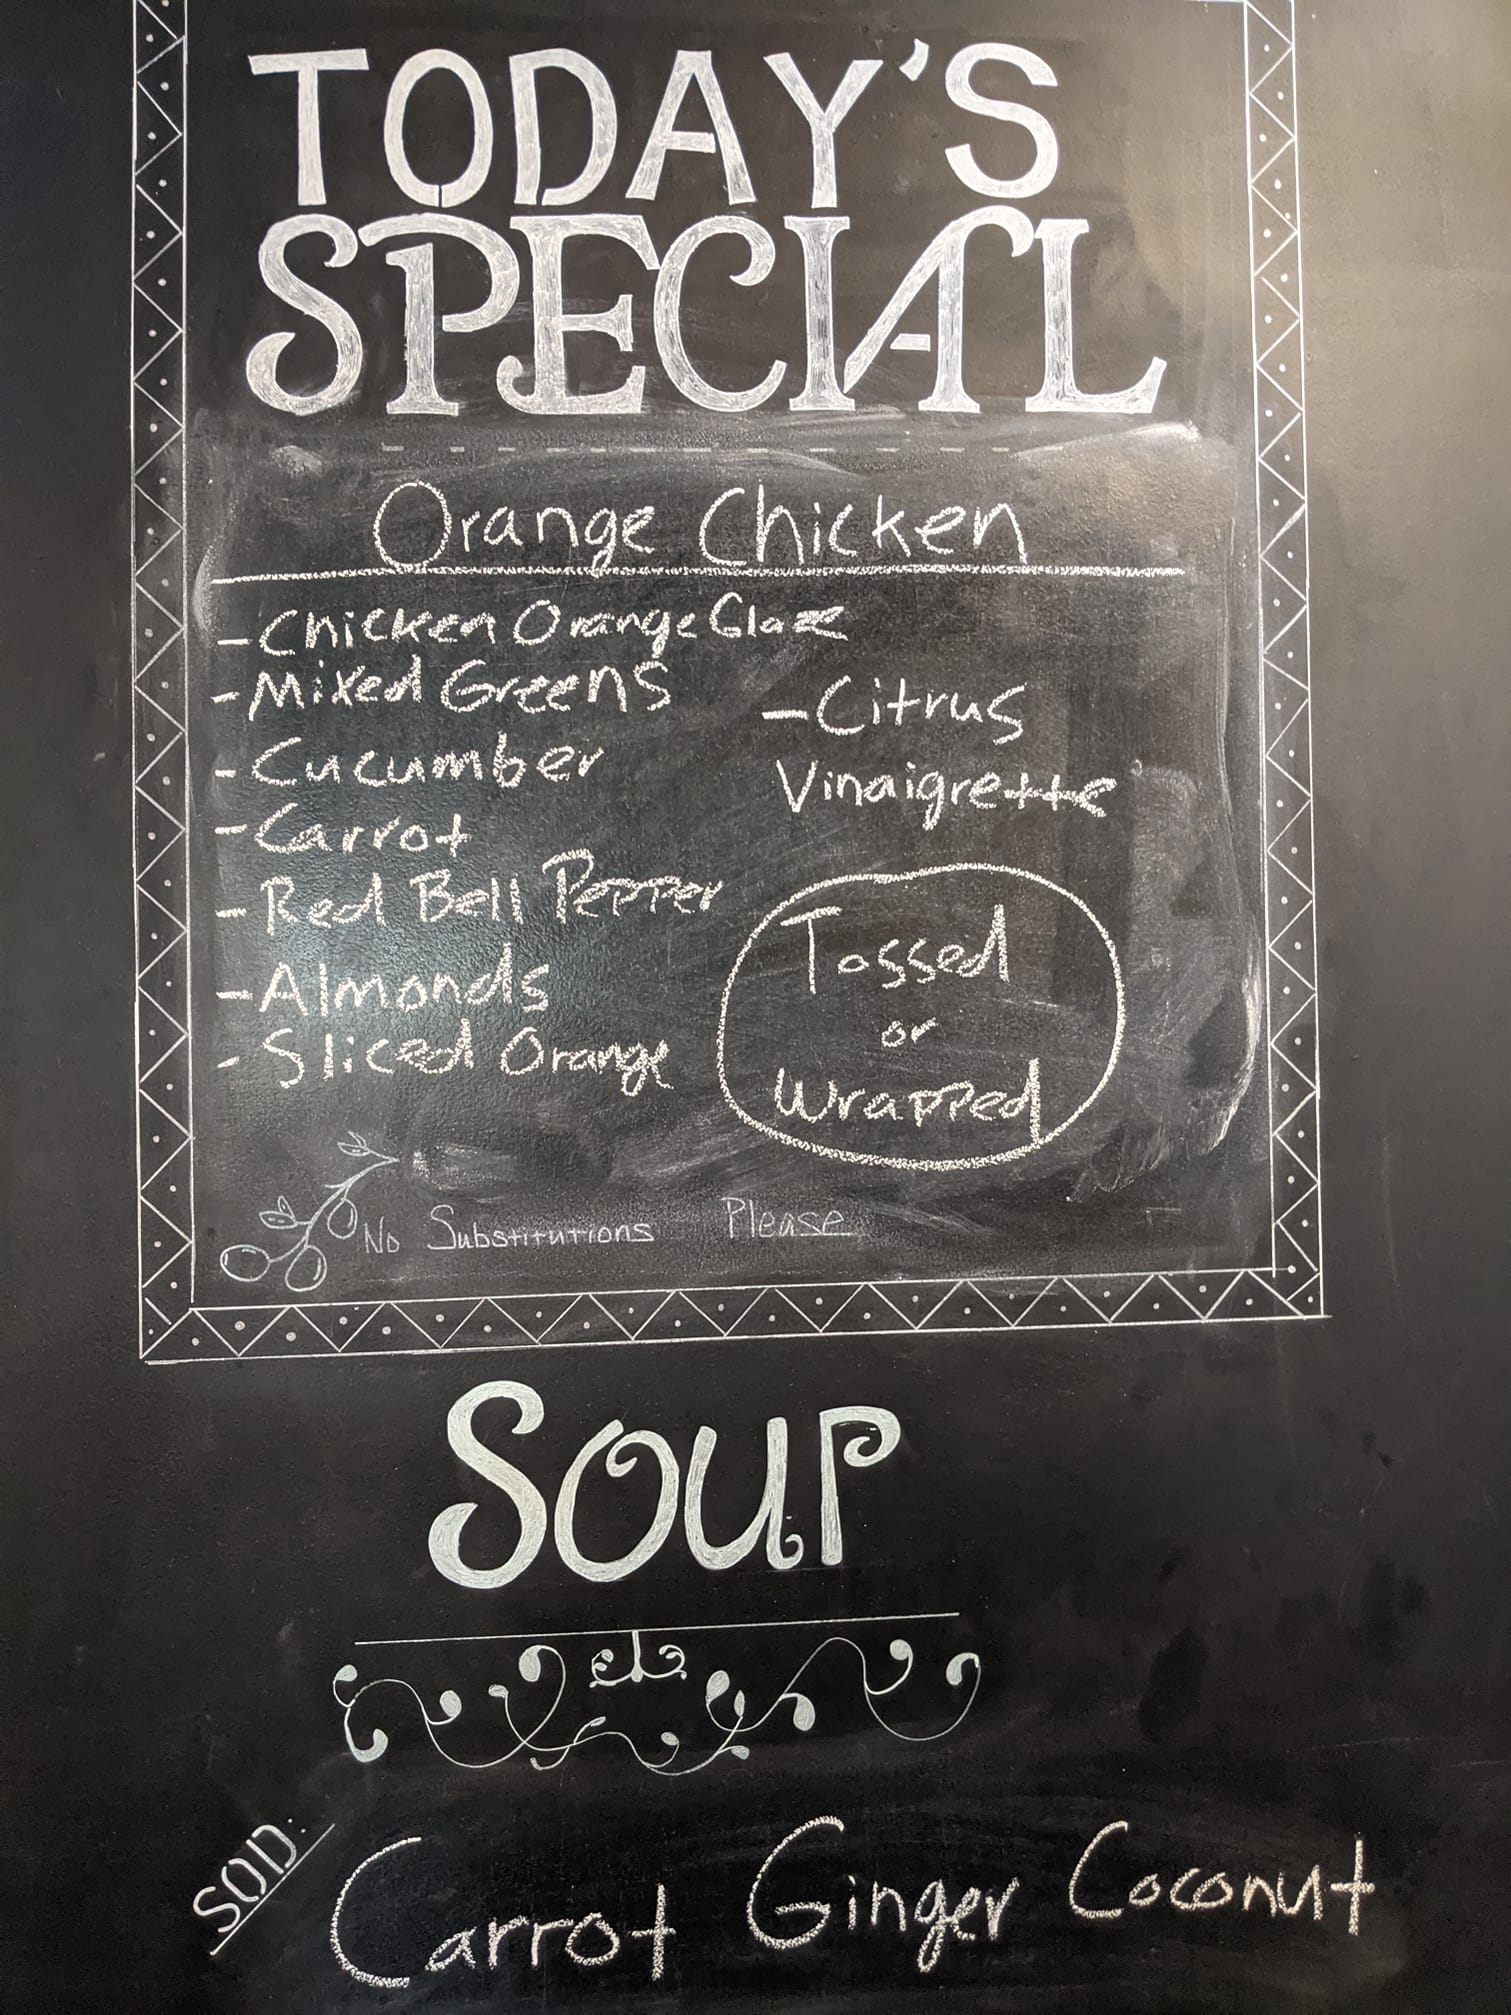 TODAY'S
SPECIAL
Orange Chicken
- Chicken Orange Glaze
- Mixed Greens
- Cucumber
- Carrot
- Red Bell Pepper
- Almonds
- Sliced Orange
- Citrus
Vinaigrette
Tossed
or
Wrapped
No Substitutions Please
SOUP
SOD:
Carrot Ginger Coconut